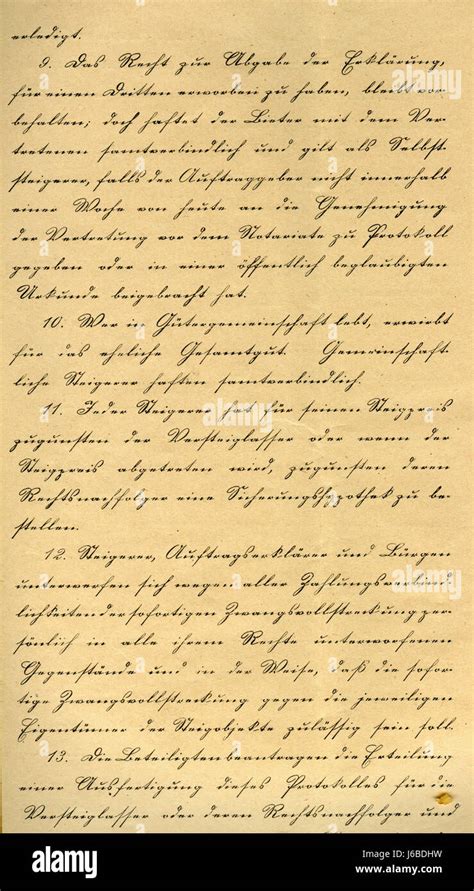 erledigt.
9. Das Recht zur Abgabe der Erklärung,
für einen Dritten erworben zu haben, bleibt vor-
behalten; doch haftet der Bieter mit dem Ver-
tretenen samtverbindlich und gilt als Selbst-
steigerer, falls der Auftraggeber nicht innerhalb
einer Woche von heute an die Genehmigung
der Vertretung vor dem Notariate zu Protokoll
gegeben oder in einer öffentlich beglaubigten
Urkunde beigebracht hat.
10. Wer in Gütergemeinschaft lebt, erwirbt
für das eheliche Gesamtgut. Gemeinschaft-
liche Steigerer haften samtverbindlich.
11. Jeder Steigerer hat für seinen Steigpreis
zugunsten der Versteiglasser oder wenn der
Steigpreis abgetreten wird, zugunsten deren
Rechtsnachfolger eine Sicherungshypothek zu be-
stellen.
12. Steigerer, Auftragserklärer und Bürgen
unterwerfen sich wegen aller Zahlungsverbind-
lichkeiten der sofortigen Zwangsvollstreckung per-
sönlich in alle ihrem Rechte unterworfenen
Gegenstände und in der Weise, daß die sofor-
tige Zwangsvollstreckung gegen die jeweiligen
Eigentümer der Steigobjekte zulässig sein soll.
13. Die Beteiligten beantragen die Erteilung
einer Ausfertigung dieses Protokolles für die
Versteiglasser oder deren Rechtsnachfolger und
alamy
alamy
alamy
alamy
alamy
Image ID: J6BDHW
www.alamy.com